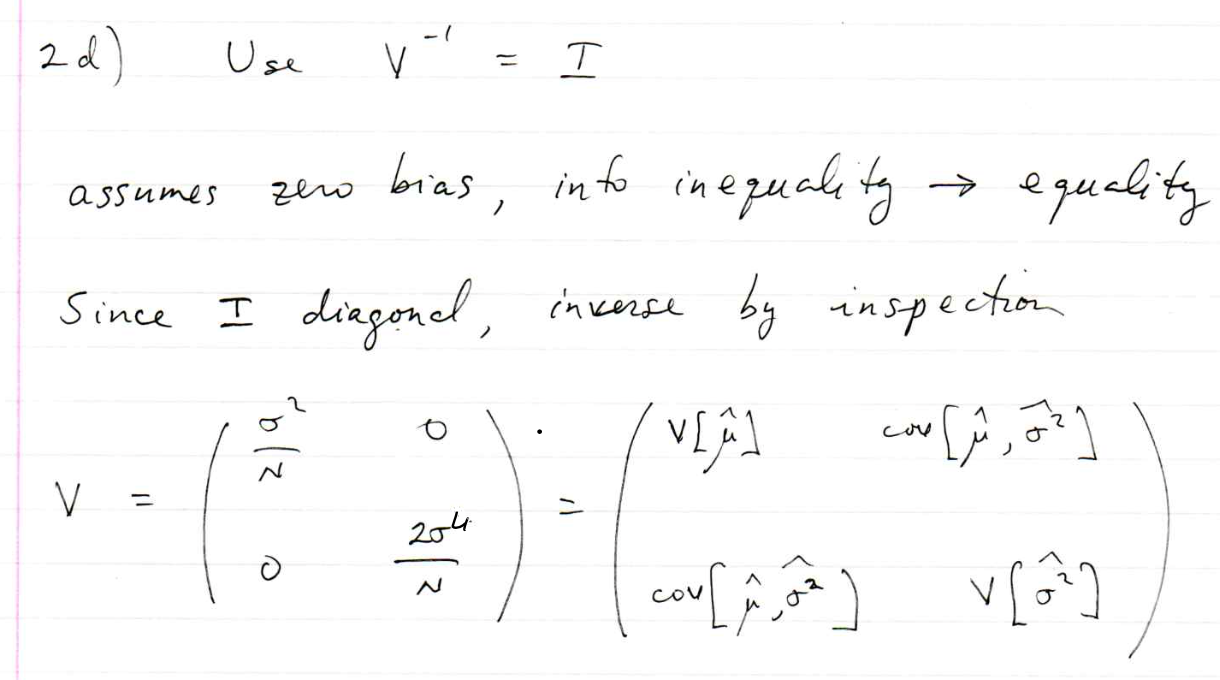 2d) Use V⁻¹ = I
assumes zero bias, into inequality → equality
Since I diagonal, inverse by inspection
V = ( σ²/N 0 ; 0 2σ⁴/N ) . = ( V[μ̂] cov[μ̂, σ̂²] ; cov[μ̂, σ̂²] V[σ̂²] )